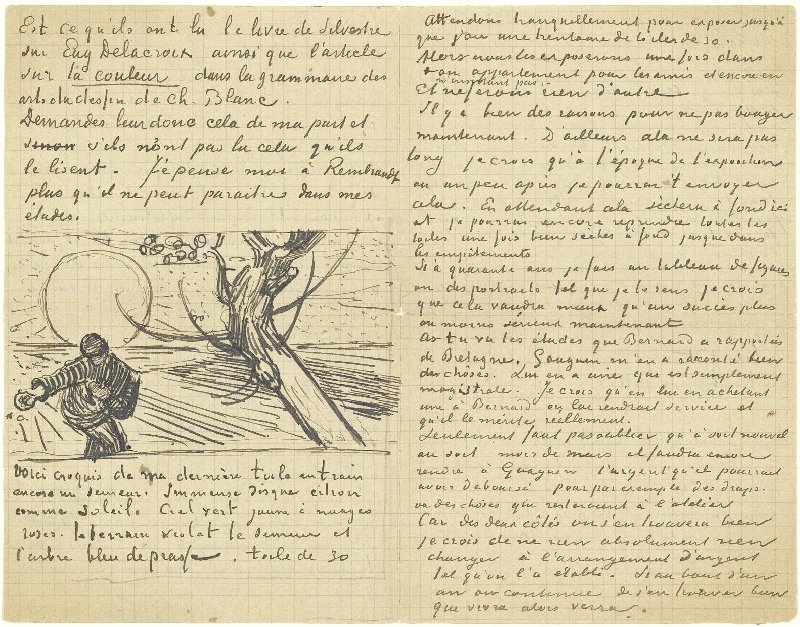 Est ce qu'ils ont lu le livre de Silvestre
sur Eug Delacroix ainsi que l'article
sur la couleur dans la grammaire des
arts du dessin de Ch. Blanc.
Demandes leur donc cela de ma part et
sinon s'ils n'ont pas lu cela qu'ils
le lisent. J'epense moi à Rembrandt
plus qu'il ne peut paraitre dans mes
études.
Voici croquis de ma dernière toile en train
encore un semeur. Immense disque citron
comme soleil. Ciel vert jaune à nuages
roses. le terrain violet le semeur et
l'arbre bleu de prusse. toile de 30
Attendons tranquillement pour exposer jusqu'à
que j'aie une trentaine de toiles de 30.
Alors nous les exposerons une fois dans
ton appartement pour les amis et encore en
n'insistant pas.
Et ne ferons rien d'autre
Il y a bien des raisons pour ne pas bouger
maintenant. D'ailleurs cela ne sera pas
long je crois qu'à l'époque de l'exposition
ou un peu après je pourrai t'envoyer
cela. En attendant cela sechera à fond ici
et je pourrai encore reprendre toutes les
toiles une fois bien sèches à fond jusque dans
les empâtements
Si à quarante ans je fais un tableau de figures
ou des portraits tel que je le sens je crois
que cela vaudra mieux qu'un succès plus
ou moins sérieux maintenant
As tu vu les études que Bernard a rapportés
de Bretagne, Gauguin m'en a raconté bien
des choses. Lui en a une que est simplement
magistrale. Je crois qu'en lui en achetant
une à Bernard on lui rendrait service et
qu'il le mérite reellement.
Seulement faut pas oublier qu'à soit nouvel
an soit mois de mars il faudra encore
rendre à Gauguin l'argent qu'il pourrait
avoir deboursé pour par exemple des draps
ou des choses qui resteraient à l'atelier
Car des deux côtés on s'en trouvera bien
je crois de ne rien absolument rien
changer à l'arrangement d'argent
tel qu'on l'a établi. Si au bout d'un
an on continue de s'en trouver bien
que vivra alors verra.